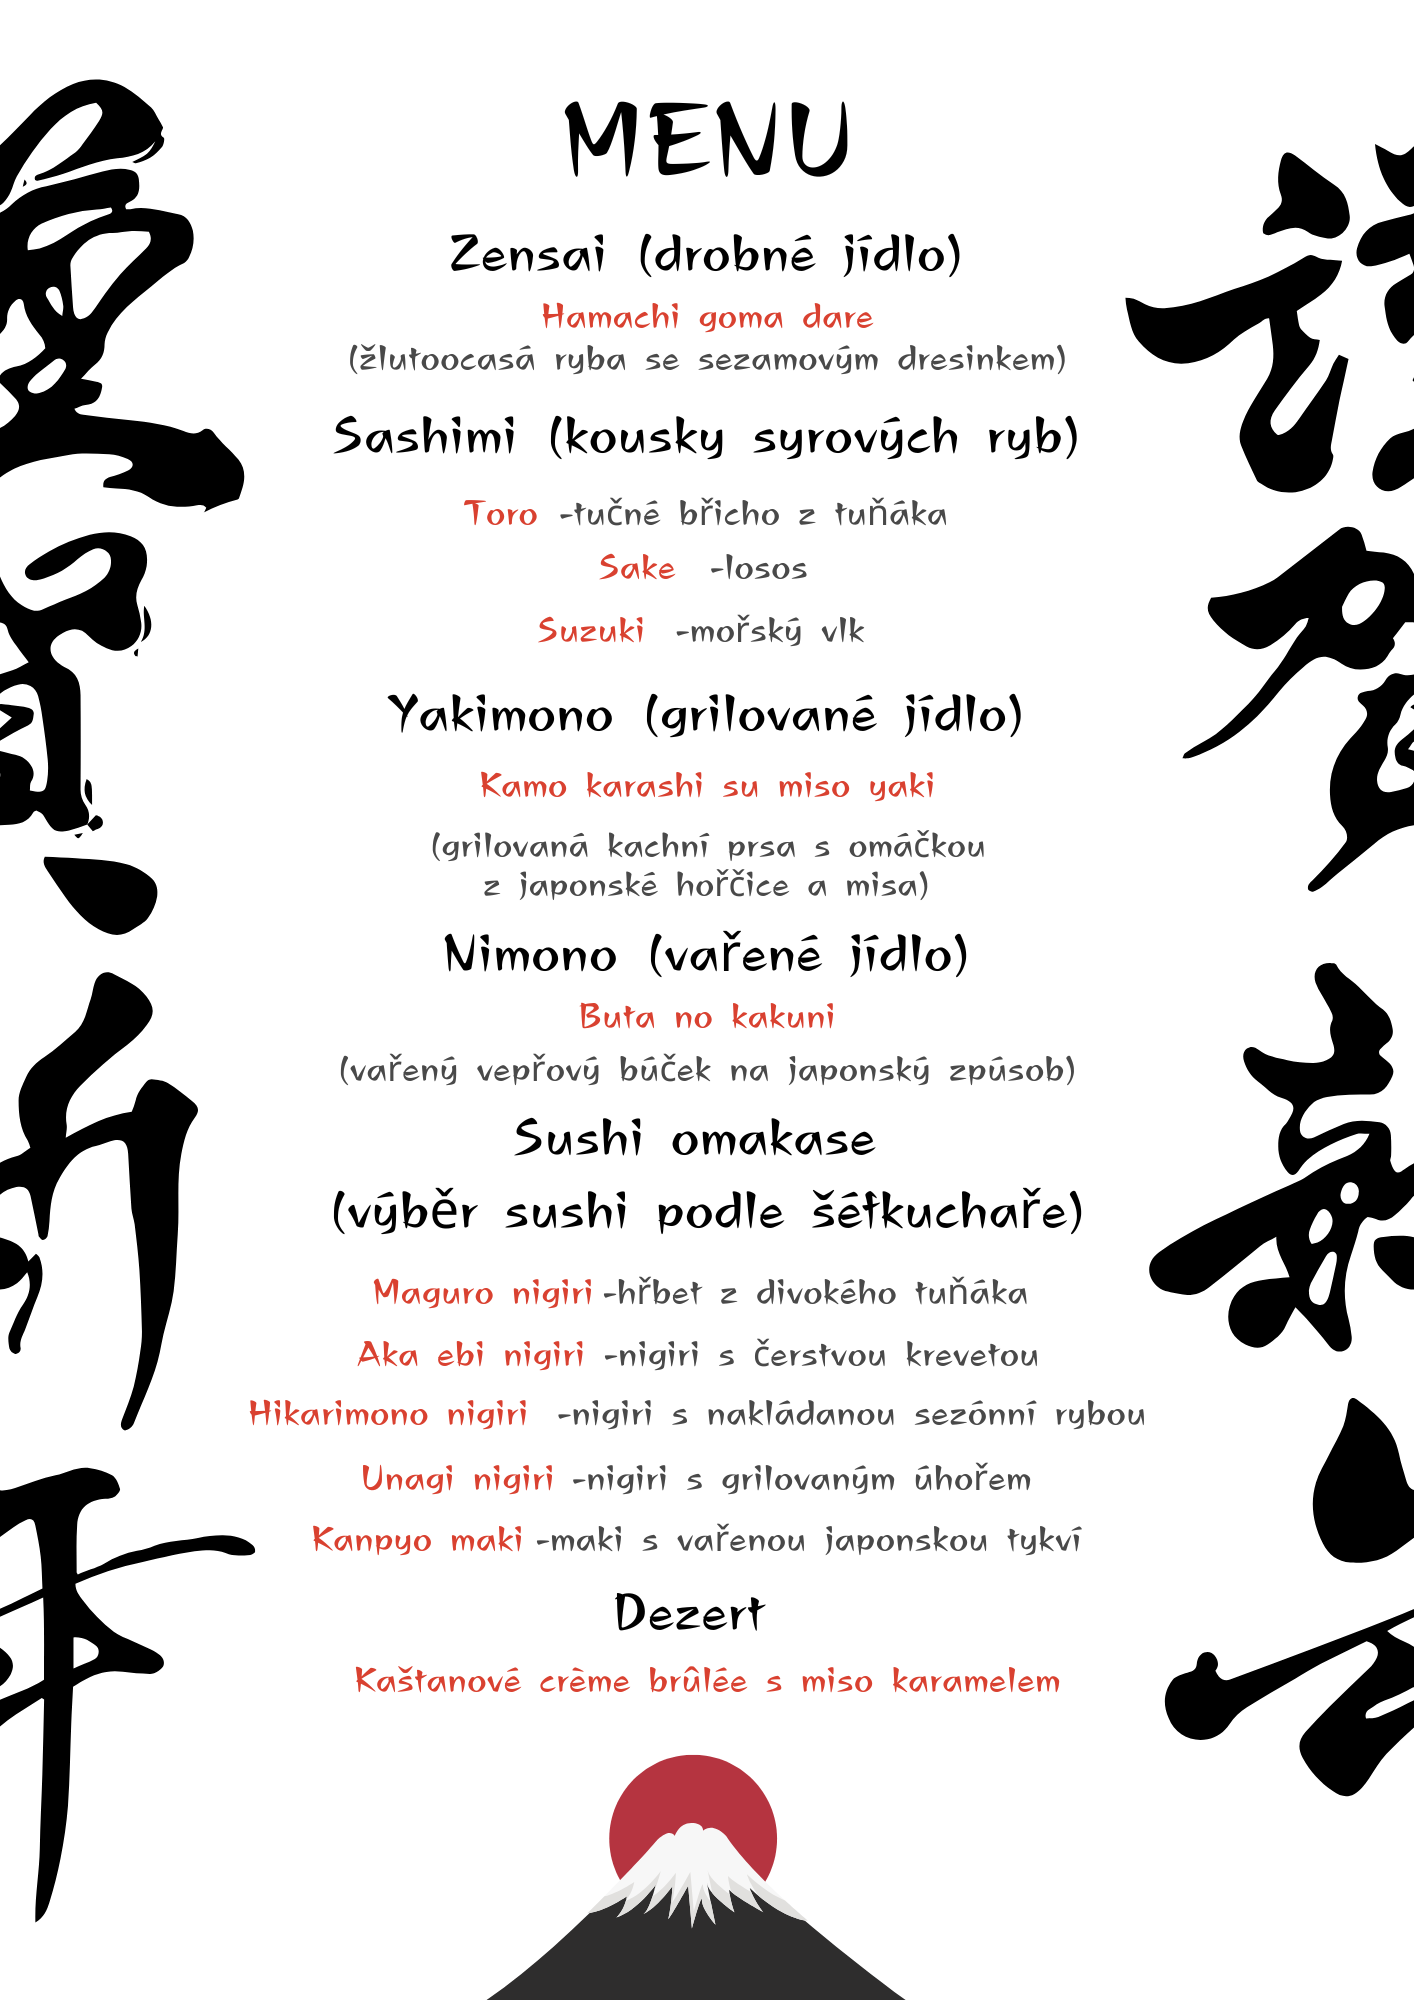 MENU
Zensai (drobné jídlo)
Hamachi goma dare
(žlutoocasá ryba se sezamovým dresinkem)
Sashimi (kousky syrových ryb)
Toro -tučné břicho z tuňáka
Sake -losos
Suzuki -mořský vlk
Yakimono (grilované jídlo)
Kamo karashi su miso yaki
(grilovaná kachní prsa s omáčkou
z japonské hořčice a misa)
Nimono (vařené jídlo)
Buta no kakuni
(vařený vepřový búček na japonský zpúsob)
Sushi omakase
(výběr sushi podle šéfkuchaře)
Maguro nigiri -hřbet z divokého tuňáka
Aka ebi nigiri -nigiri s čerstvou krevetou
Hikarimono nigiri -nigiri s nakládanou sezónní rybou
Unagi nigiri -nigiri s grilovaným úhořem
Kanpyo maki -maki s vařenou japonskou tykví
Dezert
Kaštanové crème brûlée s miso karamelem